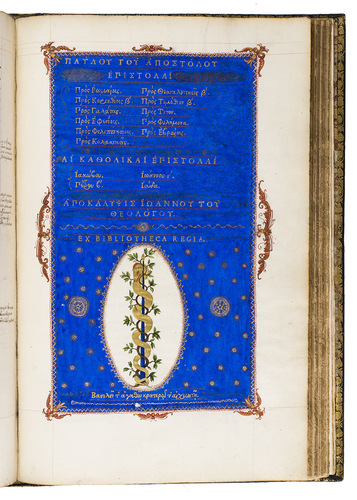 ΠΑΥΛΟΥ ΤΟΥ ἈΠΟΣΤΟΛΟΥ
ἘΠΙΣΤΟΛΑΙ
Πρὸς Ῥωμαίους. Πρὸς Θεσσαλονικεῖς β.
Πρὸς Κορινθίους β. Πρὸς Τιμόθεον β.
Πρὸς Γαλάτας. Πρὸς Τίτον.
Πρὸς Ἐφεσίους. Πρὸς Φιλήμονα.
Πρὸς Φιλιππησίους. Πρὸς Ἑβραίους.
Πρὸς Κολασσαεῖς.
ΑΙ ΚΑΘΟΛΙΚΑΙ ἘΠΙΣΤΟΛΑΙ
Ἰακώβου. Ἰωάννου γ.
Πέτρου β. Ἰούδα.
ἈΠΟΚΑΛΥΨΙΣ ἸΩΑΝΝΟΥ ΤΟΥ
ΘΕΟΛΟΓΟΥ.
EX BIBLIOTHECA REGIA.
Βασιλεῖ τ' ἀγαθῷ κρατερῷ τ' αἰχμητῇ.